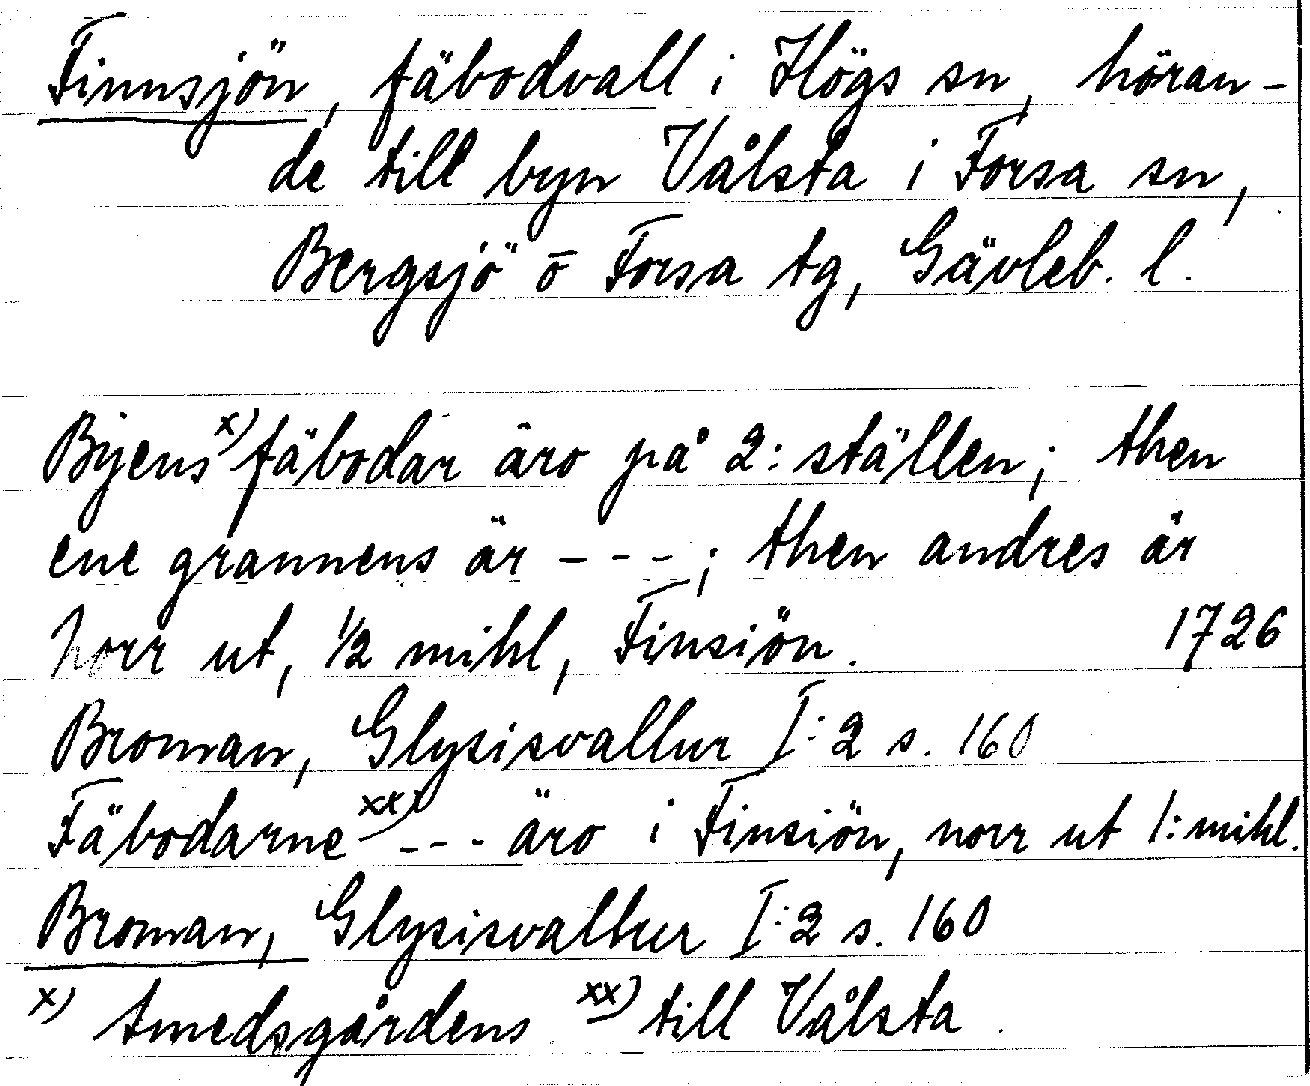 Finnsjön, fäbodvall i Högs sn, höran-
de till byn Vålsta i Forsa sn,
Bergsjö o Forsa tg, Gävleb. l.
Byens x) fäbodar äro på 2: ställen; then
ene grannens är - - - ; then andres är
norr ut, ½ mihl, Finsiön. 1726
Broman, Glysisvallur I:2 s. 160
Fäbodarne xx) - - - äro i Finsiön, norr ut 1: mihl.
Broman, Glysisvallur I:2 s. 160
x) Smedsgårdens xx) till Vålsta